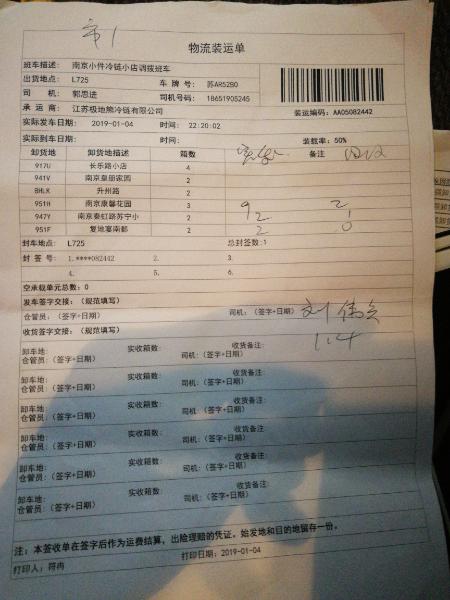 市1
物流装运单
班车描述: 南京小件冷链小店调拨班车
出货地点: L725 车牌号: 苏AR52B0
司机: 郭思进 司机号码: 18651905245
承运商: 江苏极地熊冷链有限公司 装运编码: AA05082442
实际发车日期: 2019-01-04 时间: 22:20:02
实际到车日期: 时间: 装载率: 50%
卸货地 卸货地描述 箱数 备注
917U 长乐路小店 4
941V 南京皇册家园 2
BHLK 升州路 2
951H 南京康馨花园 3 9 2
947Y 南京秦虹路苏宁小 2 2 1
951F 复地宴南都 2 2 0
封车地点: L725 总封签数:1
封签号: 1.****082442 2. 3.
4. 5. 6.
空承载单元总数: 0
发车签字交接: (规范填写)
仓管员: (签字+日期) 司机: (签字+日期) 刘伟
收货签字交接: (规范填写) 1.4
卸车地: 实收箱数: 收货备注:
仓管员: (签字+日期) 司机: (签字+日期)
卸车地: 实收箱数: 收货备注:
仓管员: (签字+日期) 司机: (签字+日期)
卸车地: 实收箱数: 收货备注:
仓管员: (签字+日期) 司机: (签字+日期)
卸车地: 实收箱数: 收货备注:
仓管员: (签字+日期) 司机: (签字+日期)
卸车地: 实收箱数: 收货备注:
仓管员: (签字+日期) 司机: (签字+日期)
卸车地: 实收箱数: 收货备注:
仓管员: (签字+日期) 司机: (签字+日期)
注: 本签收单在签字后作为运费结算, 出险理赔的凭证。始发地和目的地留存一份。
打印人: 符冉 打印日期: 2019-01-04